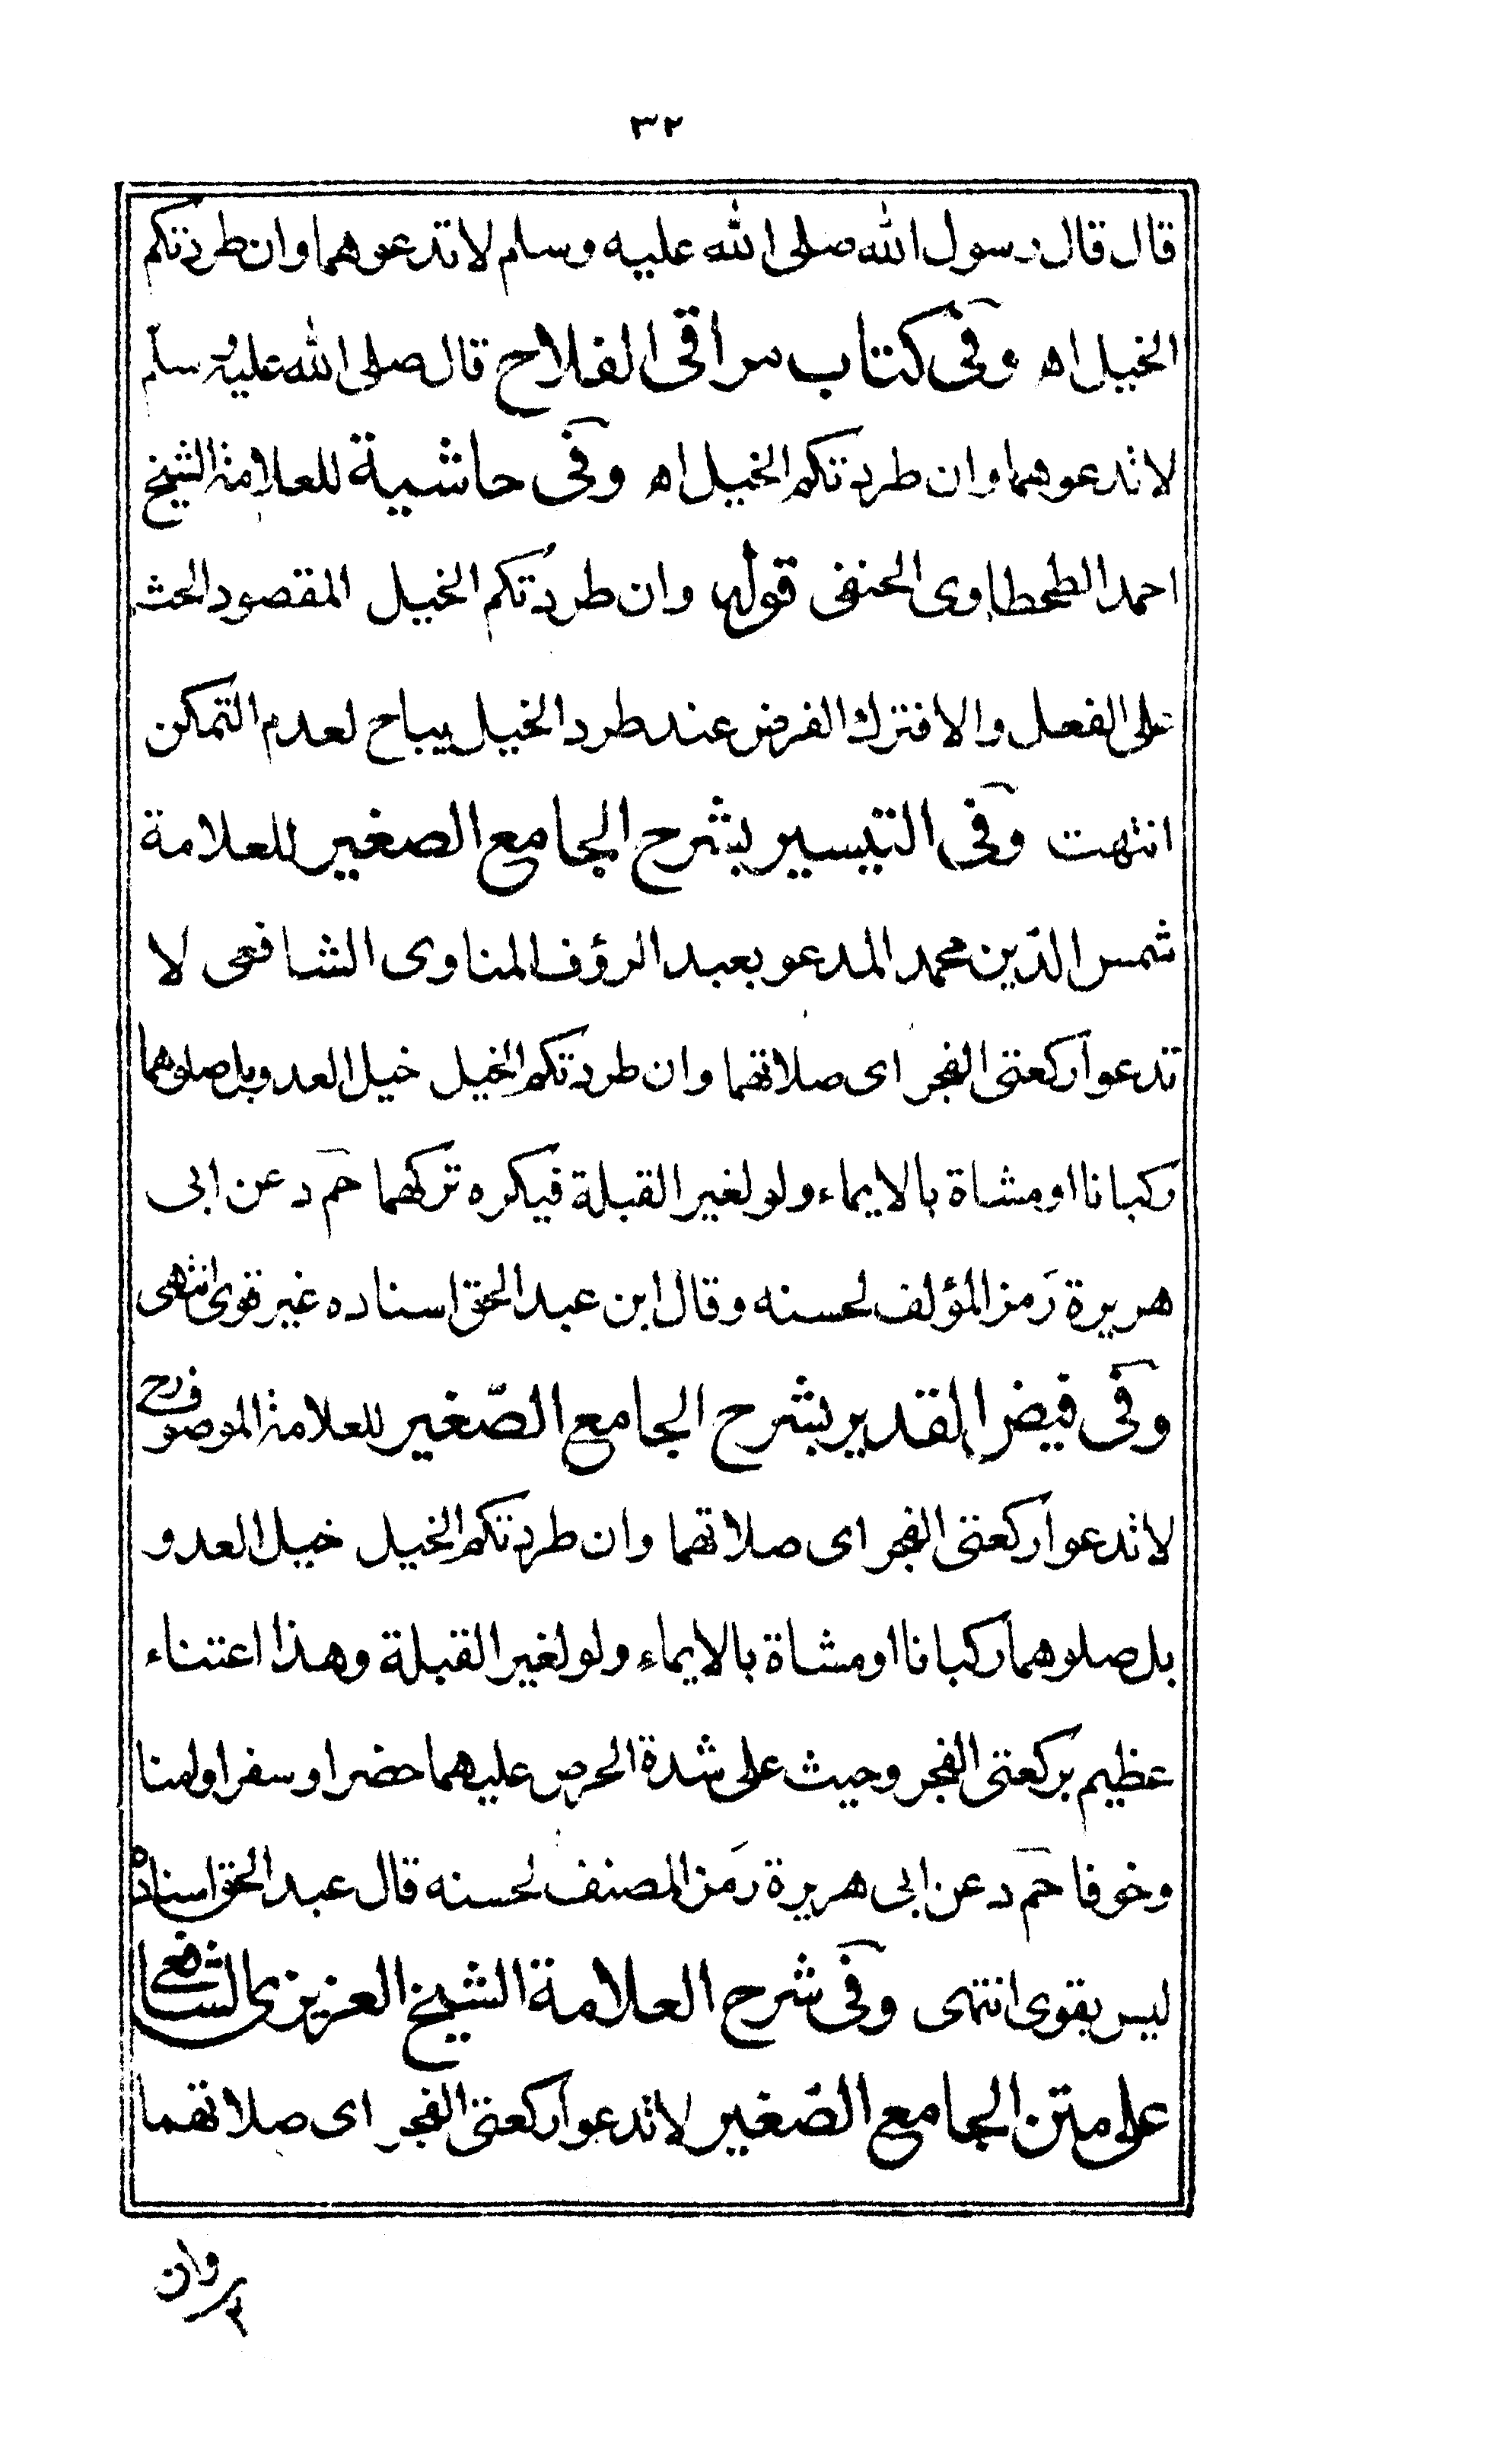 ٣٢
قال قال رسول الله صلى الله عليه وسلم لا تدعوهما وان طردتكم
الخيل اه وفى كتاب مراقى الفلاح قال صلى الله عليه وسلم
لا تدعوهما وان طردتكم الخيل اه وفى حاشية للعلامة الشيخ
احمد الطحطاوى الحنفى قوله وان طردتكم الخيل المقصود الحث
على الفعل والا فترك الفرض عند طرد الخيل يباح لعدم التمكن
انتهت وفى التيسير بشرح الجامع الصغير للعلامة
شمس الدّين محمد المدعو بعبد الرؤف المناوى الشافعى لا
تدعوا ركعتى الفجر اى صلاتهما وان طردتكم الخيل خيل العدو بل صلوهما
ركبانا او مشاة بالايماء ولو لغير القبلة فيكره تركهما حم د عن ابى
هريرة رَمز المؤلف لحسنه وقال ابن عبد الحق اسناده غير قوى انتهى
وفى فيض القدير بشرح الجامع الصّغير للعلامة الموصوف رح
لا تدعوا ركعتى الفجر اى صلاتهما وان طردتكم الخيل خيل العدو
بل صلوهما ركبانا او مشاة بالايماء ولو لغير القبلة وهذا اعتناء
عظيم بركعتى الفجر وحيث على شدة الحرص عليهما حضرا وسفرا وامنا
وخوفا حم د عن ابى هريرة رَمز المصنف لحسنه قال عبد الحق اسناده
ليس بقوى انتهى وفى شرح العلامة الشيخ العزيزى الشافعى
على متن الجامع الصّغير لا تدعوا ركعتى الفجر اى صلاتهما
وان